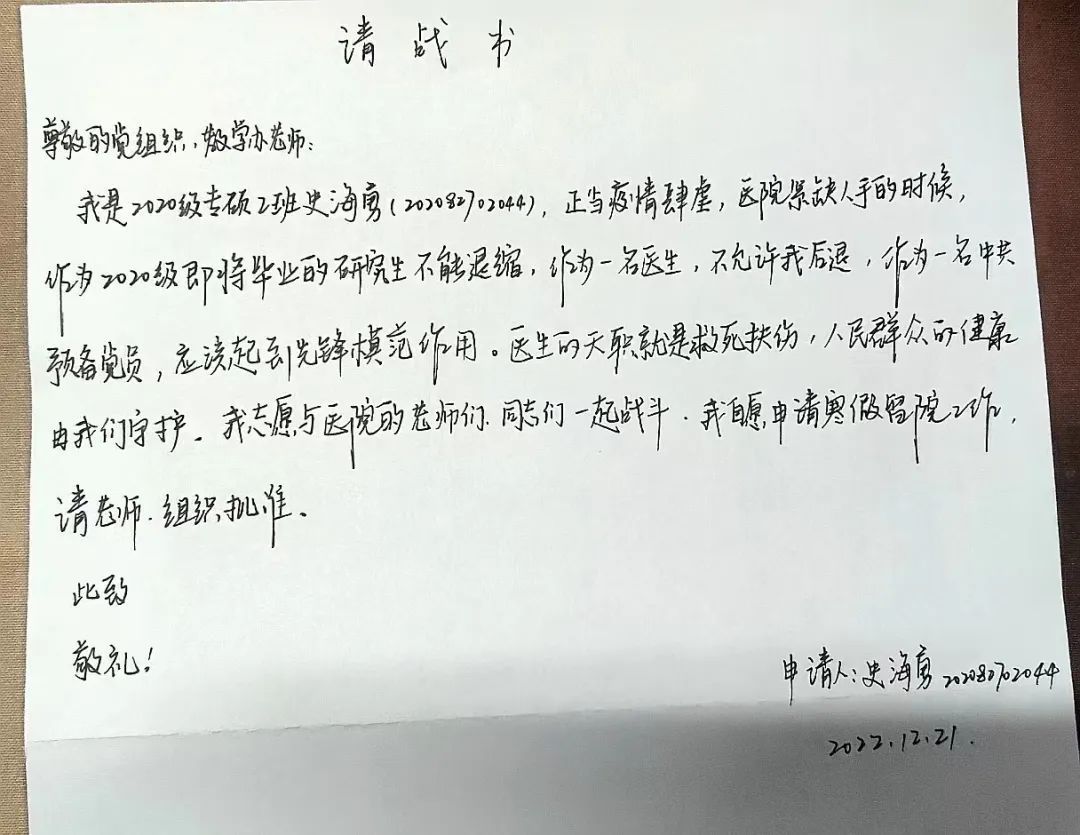 请战书
尊敬的党组织、教学办老师：
我是2020级专硕2班史海勇(202082702044)，正当疫情肆虐，医院紧缺人手的时候，
作为2020级即将毕业的研究生不能退缩，作为一名医生，不允许我后退，作为一名中共
预备党员，应该起到先锋模范作用。医生的天职就是救死扶伤，人民群众的健康
由我们守护。我志愿与医院的老师们、同志们一起战斗．我自愿申请寒假留院工作，
请老师、组织批准。
此致
敬礼！
申请人：史海勇 202082702044
2022.12.21.